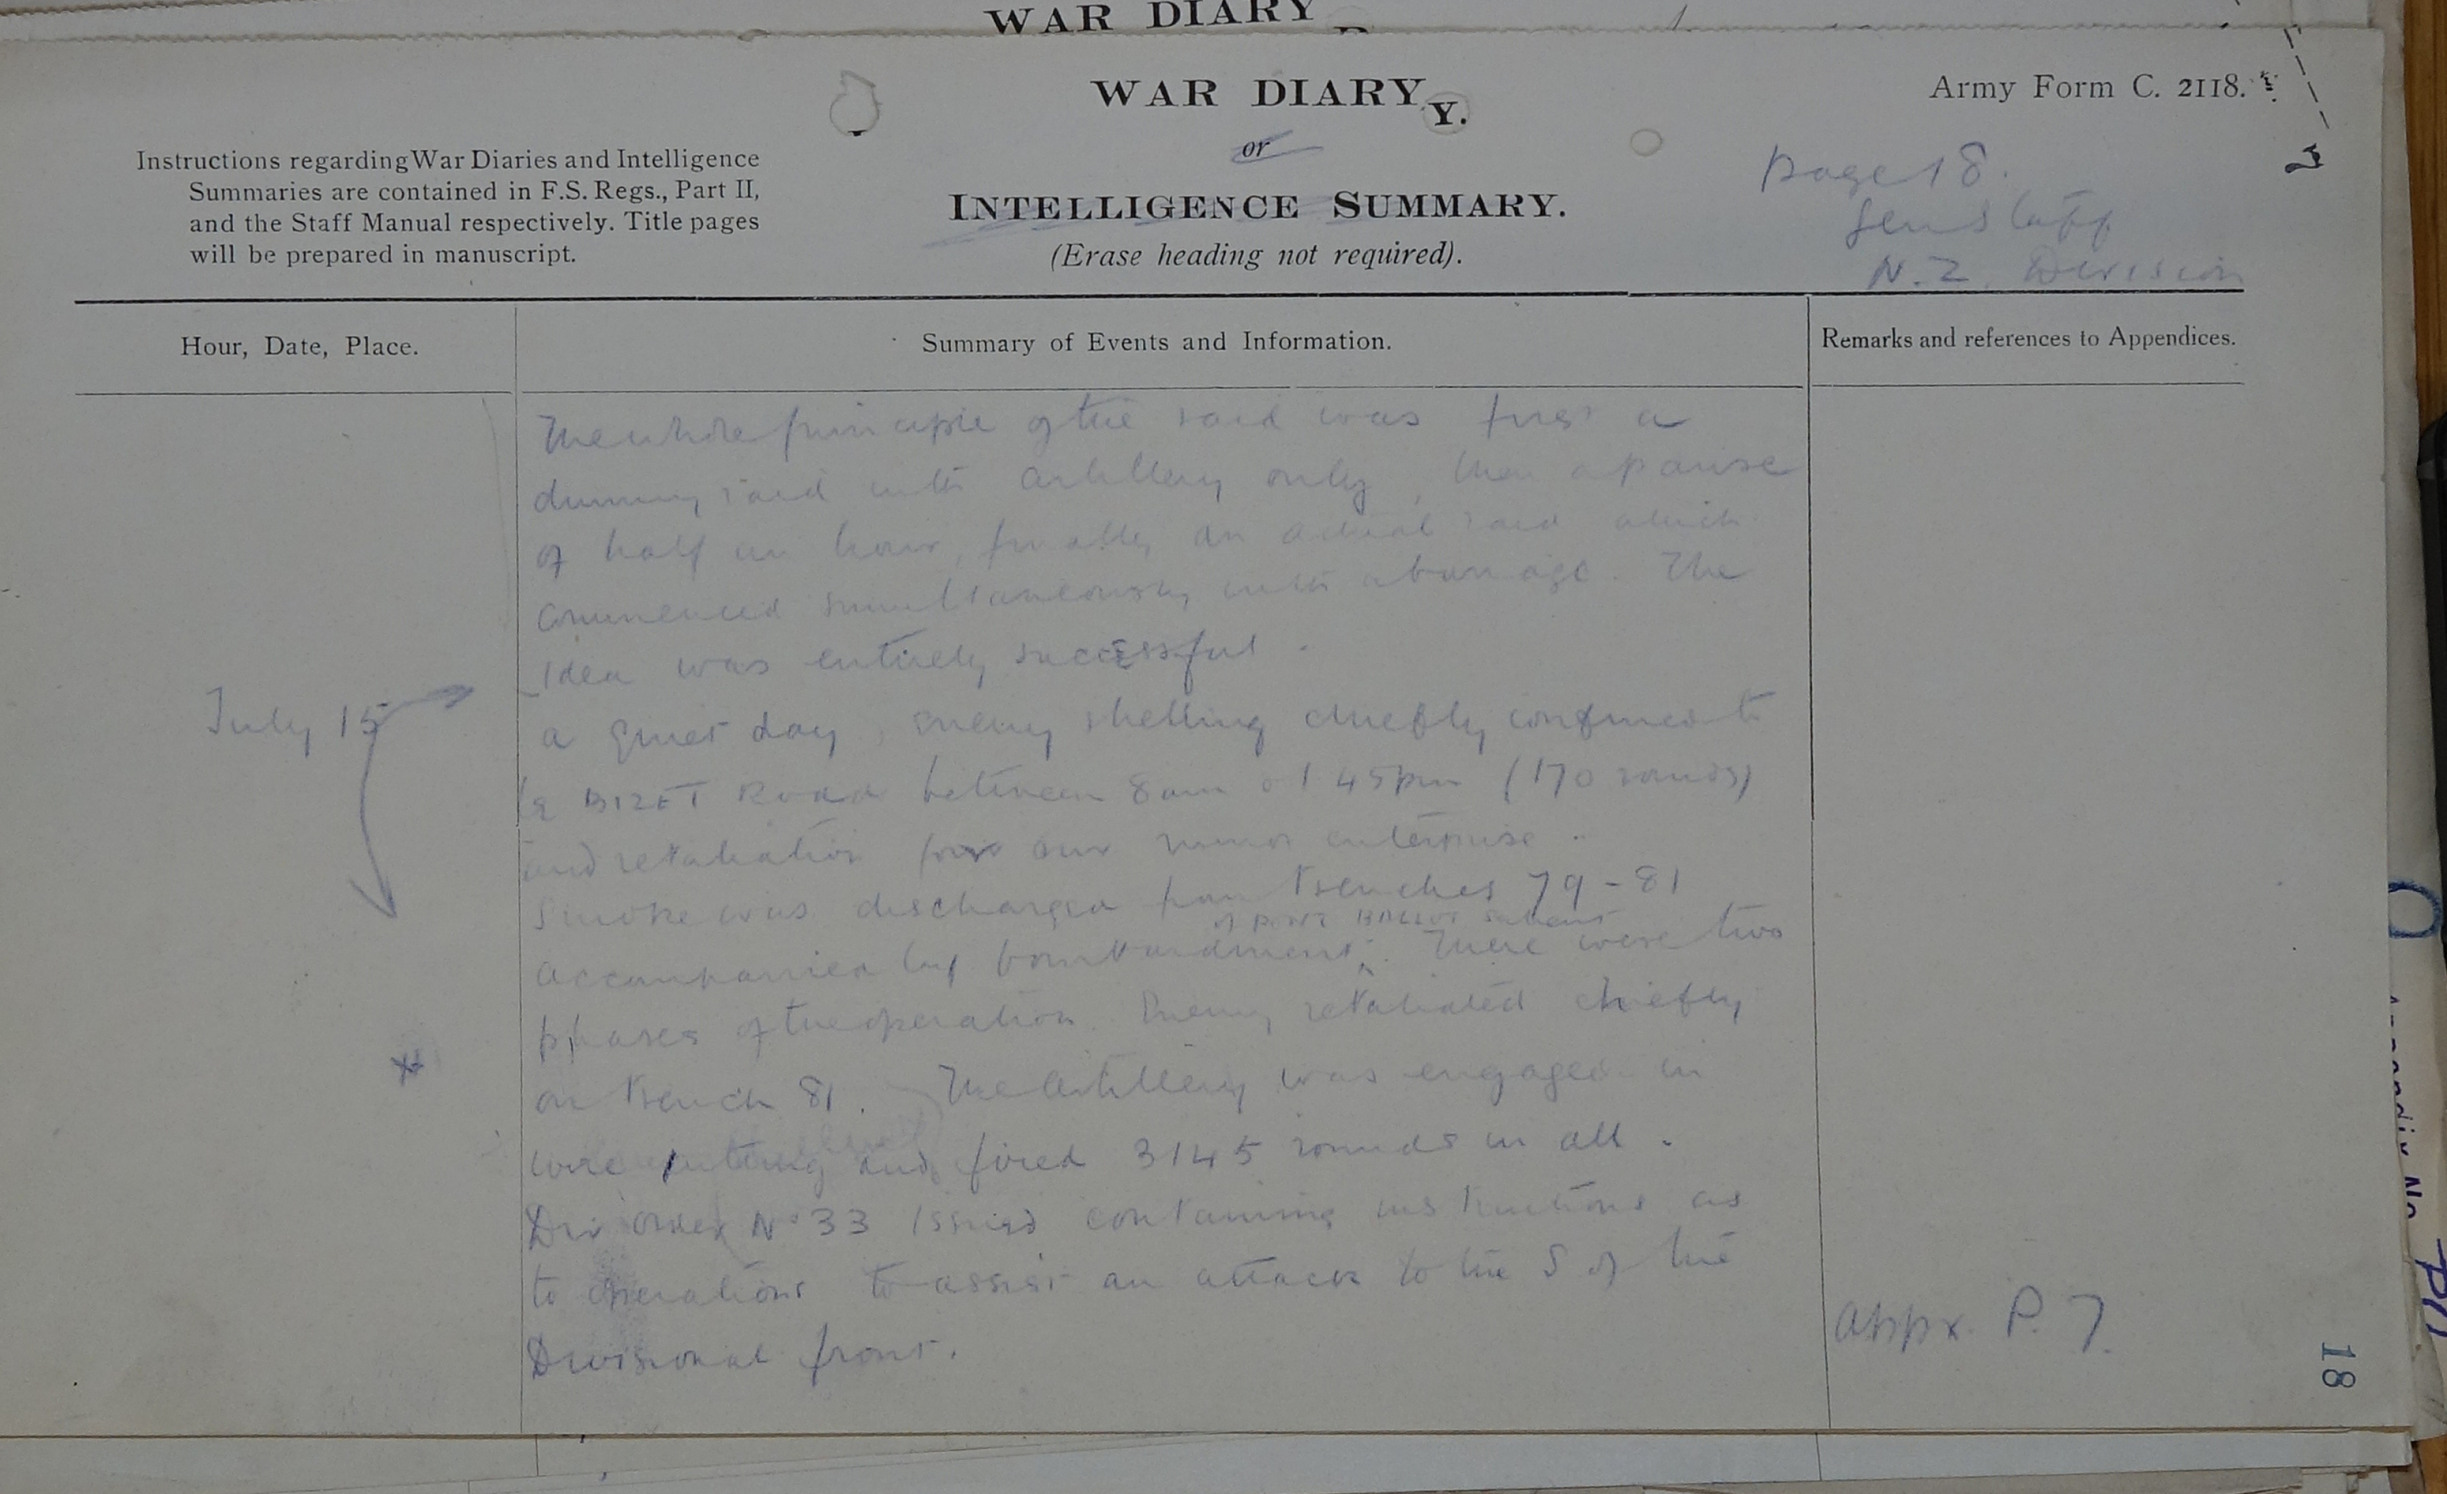 WAR DIARY
WAR DIARY
Y.
Army Form C. 2118.
or
INTELLIGENCE SUMMARY.
(Erase heading not required).
Instructions regarding War Diaries and Intelligence
Summaries are contained in F.S. Regs., Part II,
and the Staff Manual respectively. Title pages
will be prepared in manuscript.
Page 18.
Gen Staff
N.Z. Division
Hour, Date, Place.
Summary of Events and Information.
Remarks and references to Appendices.
The whole principle of the raid was first a
dummy raid with artillery only, then a pause
of half an hour, finally an actual raid which
commenced simultaneously with a barrage. The
idea was entirely successful.
July 15
a quiet day, enemy shelling chiefly confined to
Le BIZET Road between 8am & 1.45pm (170 rounds)
and retaliation for our minor enterprise.
Smoke was discharged from trenches 79-81
of salient
accompanied by bombardment. There were two
phases of the operation. Enemy retaliated chiefly
on trench 81. The Artillery was engaged in
wire cutting and fired 3145 rounds in all.
Div Order No 33 issued containing instructions as
to operations to assist an attack to the S of the
Divisional front.
Appx. P. 7.
18
Appendix No